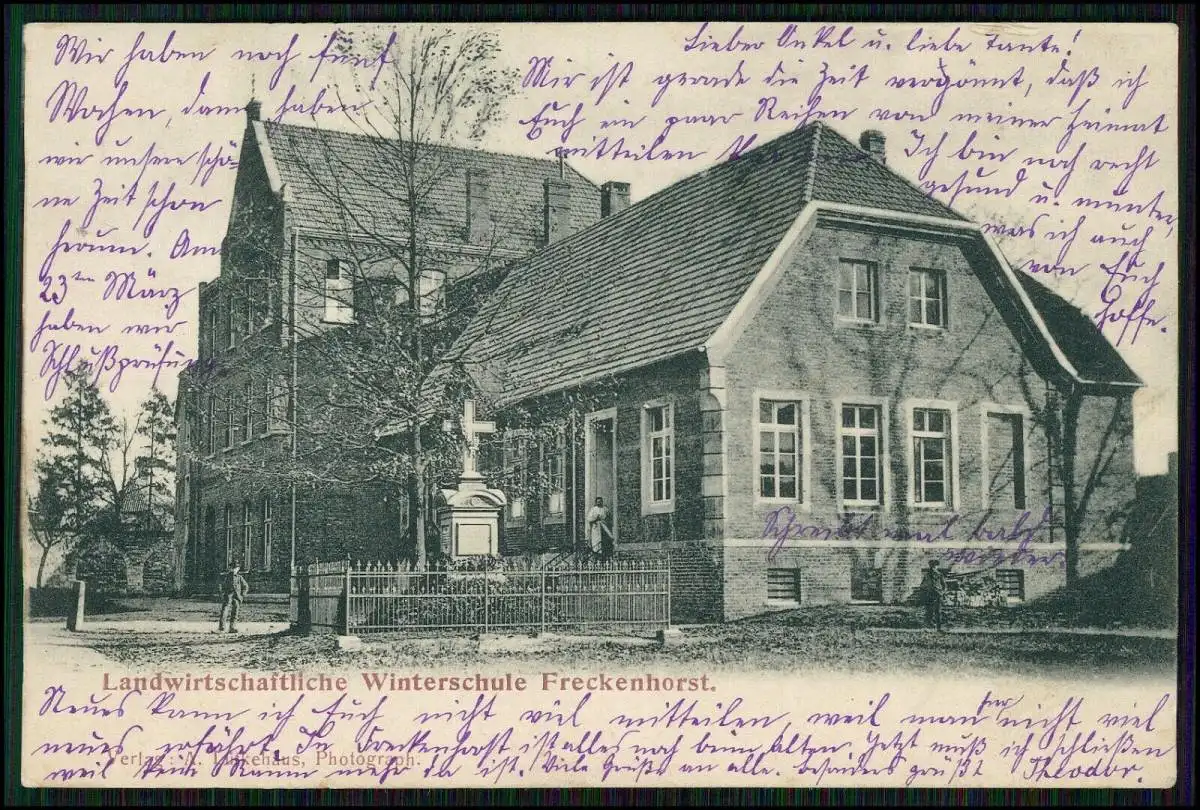 Lieber Onkel u. liebe Tante!
Mir ist gerade die Zeit vergönnt, daß ich
Euch ein paar Reihen von meiner Heimat
mitteilen
Ich bin noch recht
gesund u. munter,
was ich auch
von Euch
hoffe.
Wir haben noch fünf
Wochen, dann haben
wir unsere schö-
ne Zeit schon
herum. Am
23ten März
haben wir
Schlußprüfung
Schreibt mal bald
wieder.
Landwirtschaftliche Winterschule Freckenhorst.
Neues kann ich Euch nicht viel mitteilen, weil man hier nicht viel
neues erfährt. In Freckenhorst ist alles noch beim Alten. Jetzt muß ich schließen
Verlag: A. Photograph.
weil kein Raum mehr da ist. Viele Grüße an alle. besonders grüßt Theodor.